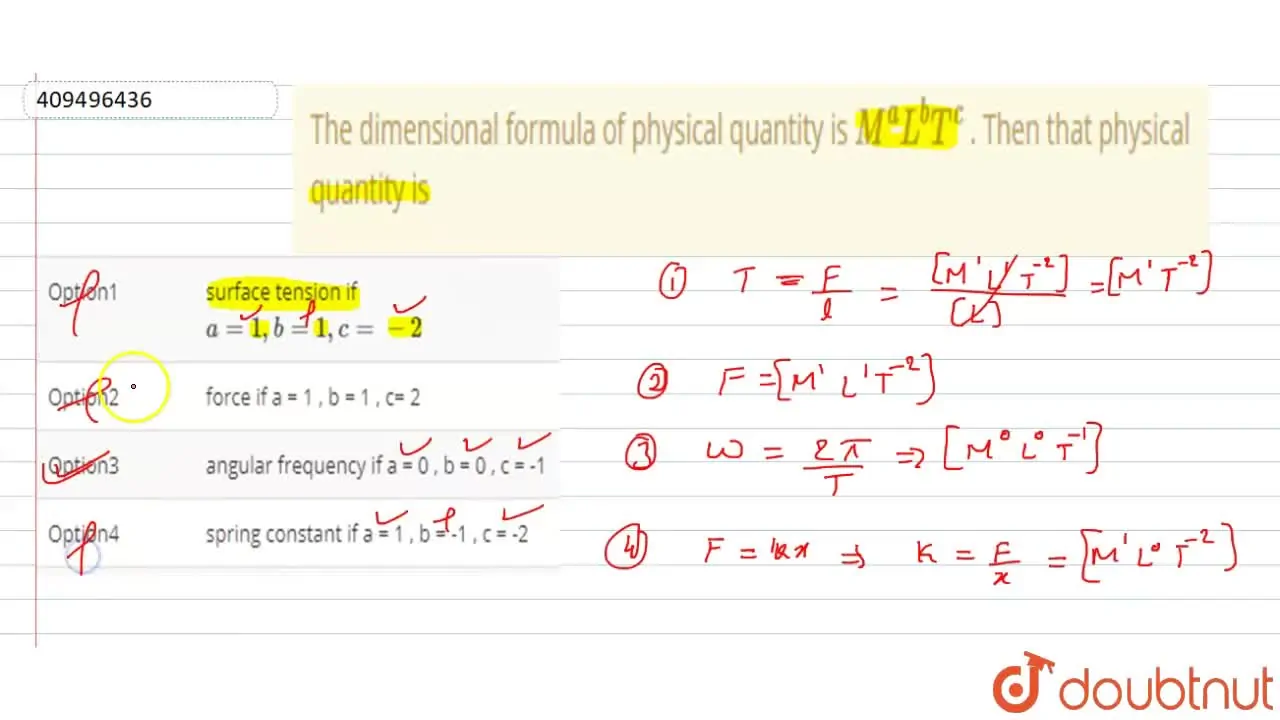 409496436
The dimensional formula of physical quantity is MᵃLᵇTᶜ . Then that physical
quantity is
Option1 surface tension if
a = 1, b = 1, c = −2
Option2 force if a = 1 , b = 1 , c= 2
Option3 angular frequency if a = 0 , b = 0 , c = -1
Option4 spring constant if a = 1 , b = -1 , c = -2
① T = F/l = [M¹ L¹ T⁻²]/[L] = [M¹ T⁻²]
② F = [M¹ L¹ T⁻²]
③ ω = 2π/T ⇒ [M⁰ L⁰ T⁻¹]
④ F = kx ⇒ K = F/x = [M¹ L⁰ T⁻²]
doubtnut